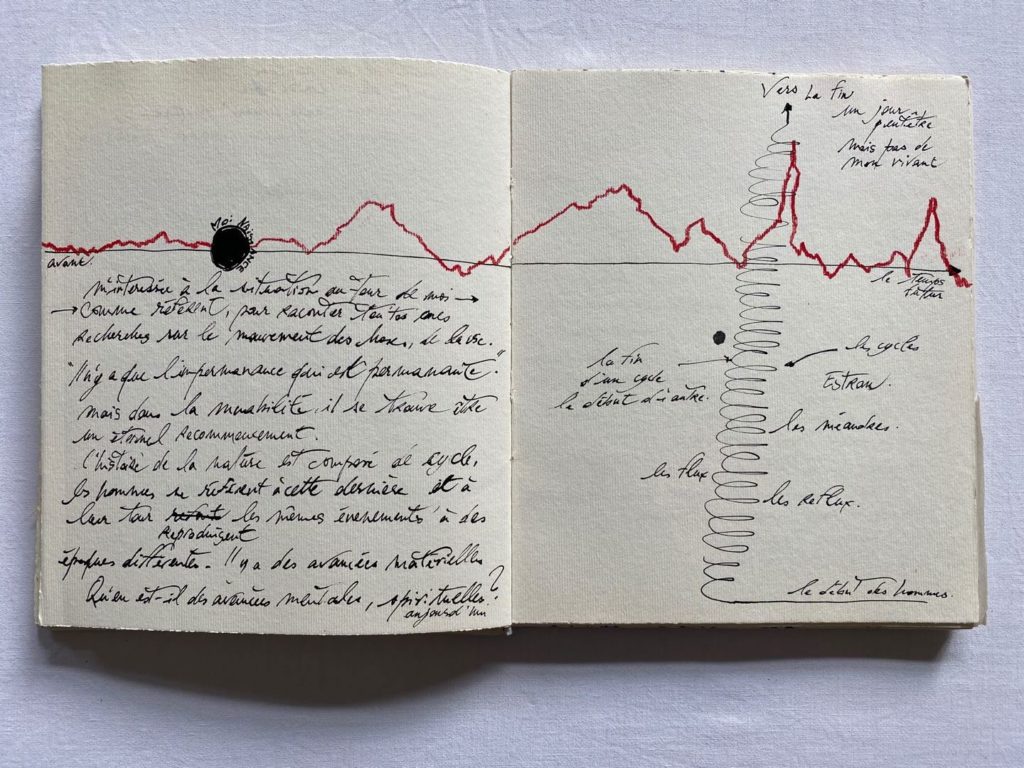 Moi Naissance
avant.
m'intéressée à la situation autour de moi →
→ comme référent, pour raconter toutes mes
recherches sur le mouvement des choses, de la vie.
"Il n'y a que l'impermanance qui est permanante."
mais dans la muabilité, il se trouve être
un éternel recommencement.
L'histoire de la nature est composé de cycle,
les hommes se réfèrent à cette dernière et à
leur tour les mêmes évenements à des
Reproduisent
époques différentes. Il y a des avancées matérielles
Qu'en est-il des avancées mentales, spirituelles ?
aujourd'hui
Vers la fin
un jour
peutêtre
mais pas de
mon vivant
le temps
futur
la fin
d'un cycle
le début d'1 autre.
les cycles
ESTRAN.
les méandres.
les flux
les Reflux.
le début des hommes.